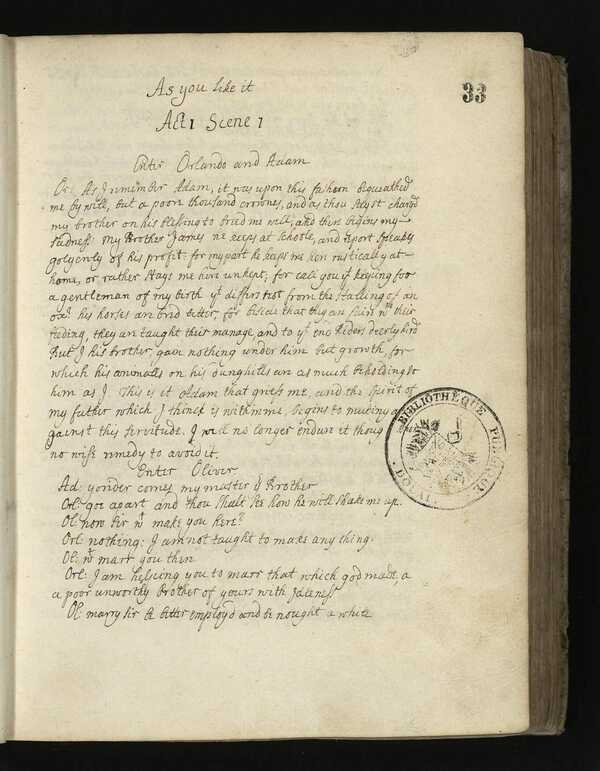 As you like it
33
Act 1 Scene 1
Enter Orlando and Adam
Or: As I remember Adam, it was upon this fashion bequeathed
me by will, but a poore thousand crownes, and as thou sayst charg'd
my brother on his blessing to breed me well, and their begins my
sadness: my Brother James he keeps at schoole, and report speaks
goldenly of his profit: for my part he keeps me here rustically at
home, or rather stays me here unkept; for call you yt keeping for
a gentleman of my birth yt differs not from the stalling of an
oxe? his horses are bred better, for beside that they are fair wth their
feeding, they are taught their manage, and to yt end Riders deerly hired
But I his brother, gain nothing under him but growth, for
which his animalls on his dunghills are as much beholding to
him as I. This is it Adam that grieves me, and the spirit of
my father which I think is within me, begins to mutiny a
gainst this servitude. I will no longer endure it thoug
no wise remedy to avoid it.
Enter Oliver
Ad: yonder comes my master yr Brother
Orl: goe apart and thou shalt see how he will shake me up.
Ol: now sir wt make you here?
Orl: nothing: I am not taught to make any thing.
Ol: wt marr you then
Orl: I am helping you to marr that which god made, a
a poor unworthy brother of yours with idleness
Ol: marry sir be better employd and be nought a while
BIBLIOTHÈQUE PUBLIQUE